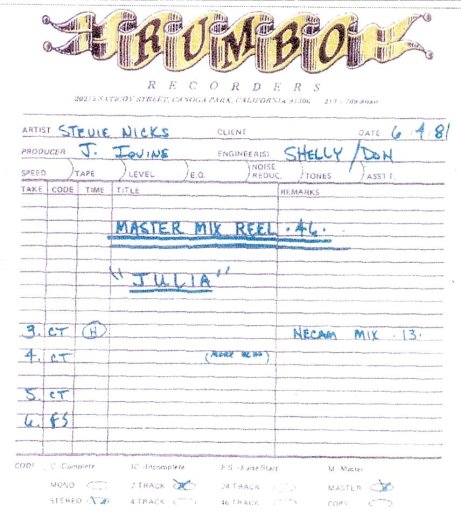 RUMBO
RECORDERS
20215 SATICOY STREET, CANOGA PARK, CALIFORNIA 91306
ARTIST STEVIE NICKS CLIENT DATE 6 4 81
PRODUCER J. IOVINE ENGINEER(S) SHELLY/DON
SPEED TAPE LEVEL E.Q. NOISE REDUC. TONES ASST.
TAKE CODE TIME TITLE REMARKS
MASTER MIX REEL
"JULIA"
3. CT H NECAM MIX 13.
4. CT
5. CT
6. FS
CODE C - Complete IC - Incomplete F.S. - False Start M - Master
MONO 2 TRACK 24 TRACK MASTER
STEREO 4 TRACK COPY